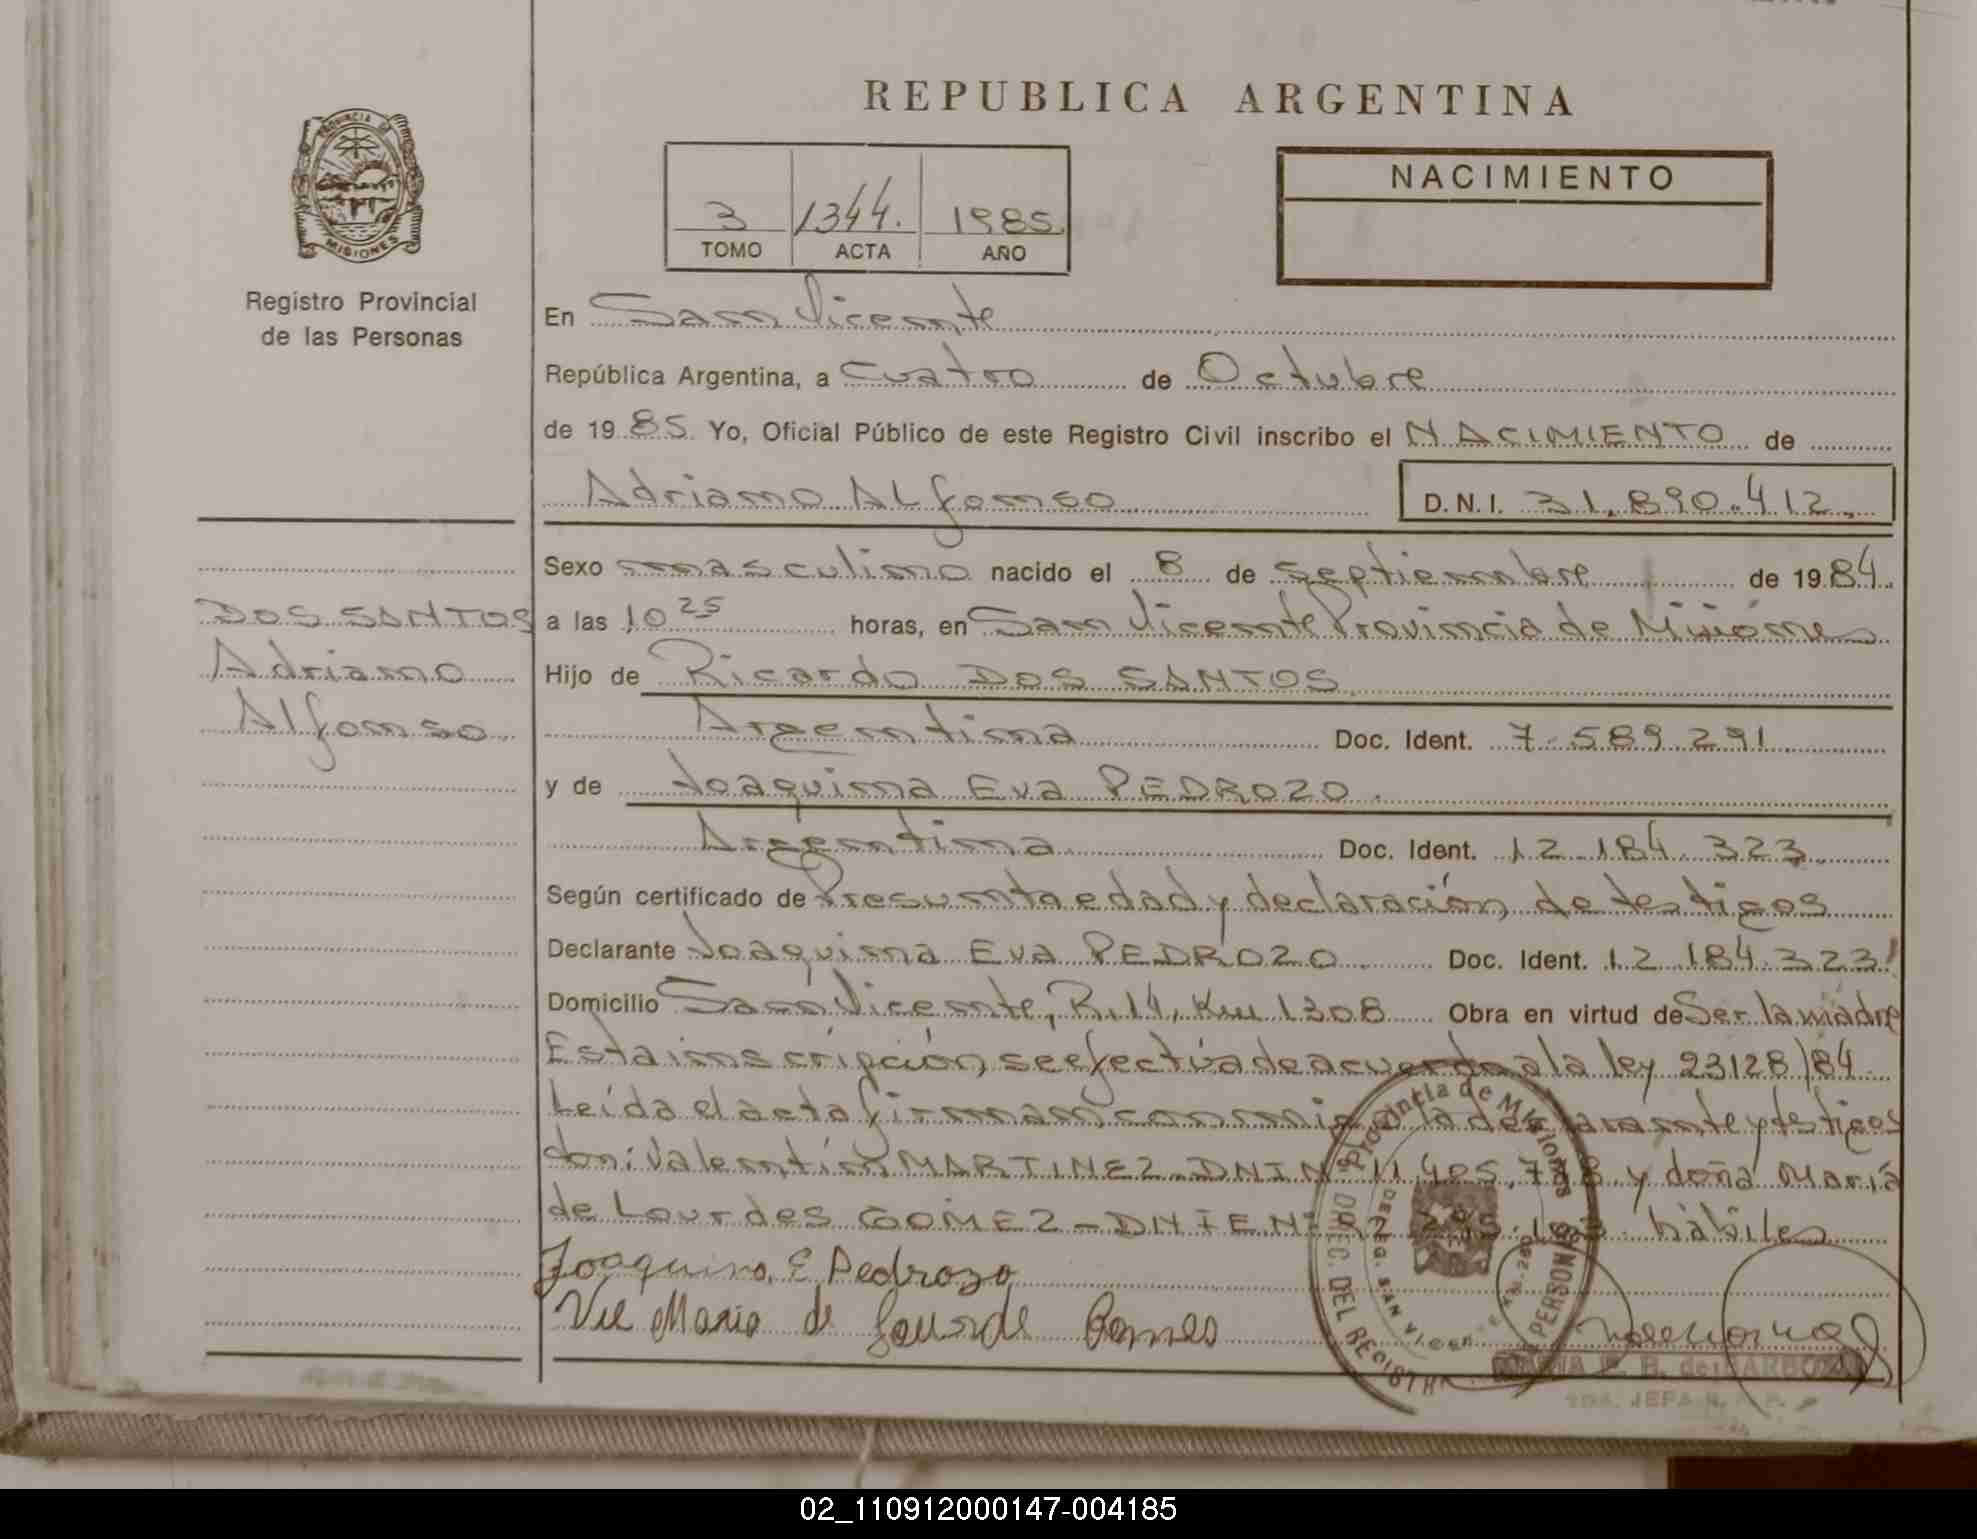 REPUBLICA ARGENTINA
PROVINCIA DE
MISIONES
Registro Provincial
de las Personas
3 1344. 1985.
TOMO ACTA AÑO
NACIMIENTO
En San Vicente
República Argentina, a cuatro de Octubre
de 1985. Yo, Oficial Público de este Registro Civil inscribo el NACIMIENTO de
Adriano Alfonso D.N.I. 31.890.412.
DOS SANTOS
Adriano
Alfonso
Sexo masculino nacido el 8 de Septiembre de 1984.
a las 10 25 horas, en San Vicente Provincia de Misiones
Hijo de Ricardo DOS SANTOS
Argentina Doc. Ident. 7.589.291
y de Joaquina Eva PEDROZO.
Argentina Doc. Ident. 12.184.323.
Según certificado de Presunta edad y declaración de testigos
Declarante Joaquina Eva PEDROZO Doc. Ident. 12.184.323
Domicilio San Vicente, R.14, Km 1308 Obra en virtud de Ser la madre
Esta inscripción, se efectúa de acuerdo a la ley 23128/84
Leída el acta firman conmigo la declarante y testigos
don: Valentín MARTINEZ DNI Nº 11.405. y doña María
de Lourdes GOMEZ - DNIE Nº hábiles
Joaquina E Pedrozo
Maria de Gomes
Provincia de Misiones
DIREC. DEL REGISTRO PERSONAS
DELEG. SAN VICENTE
B. de BARBOZA
JEFA
02_110912000147-004185